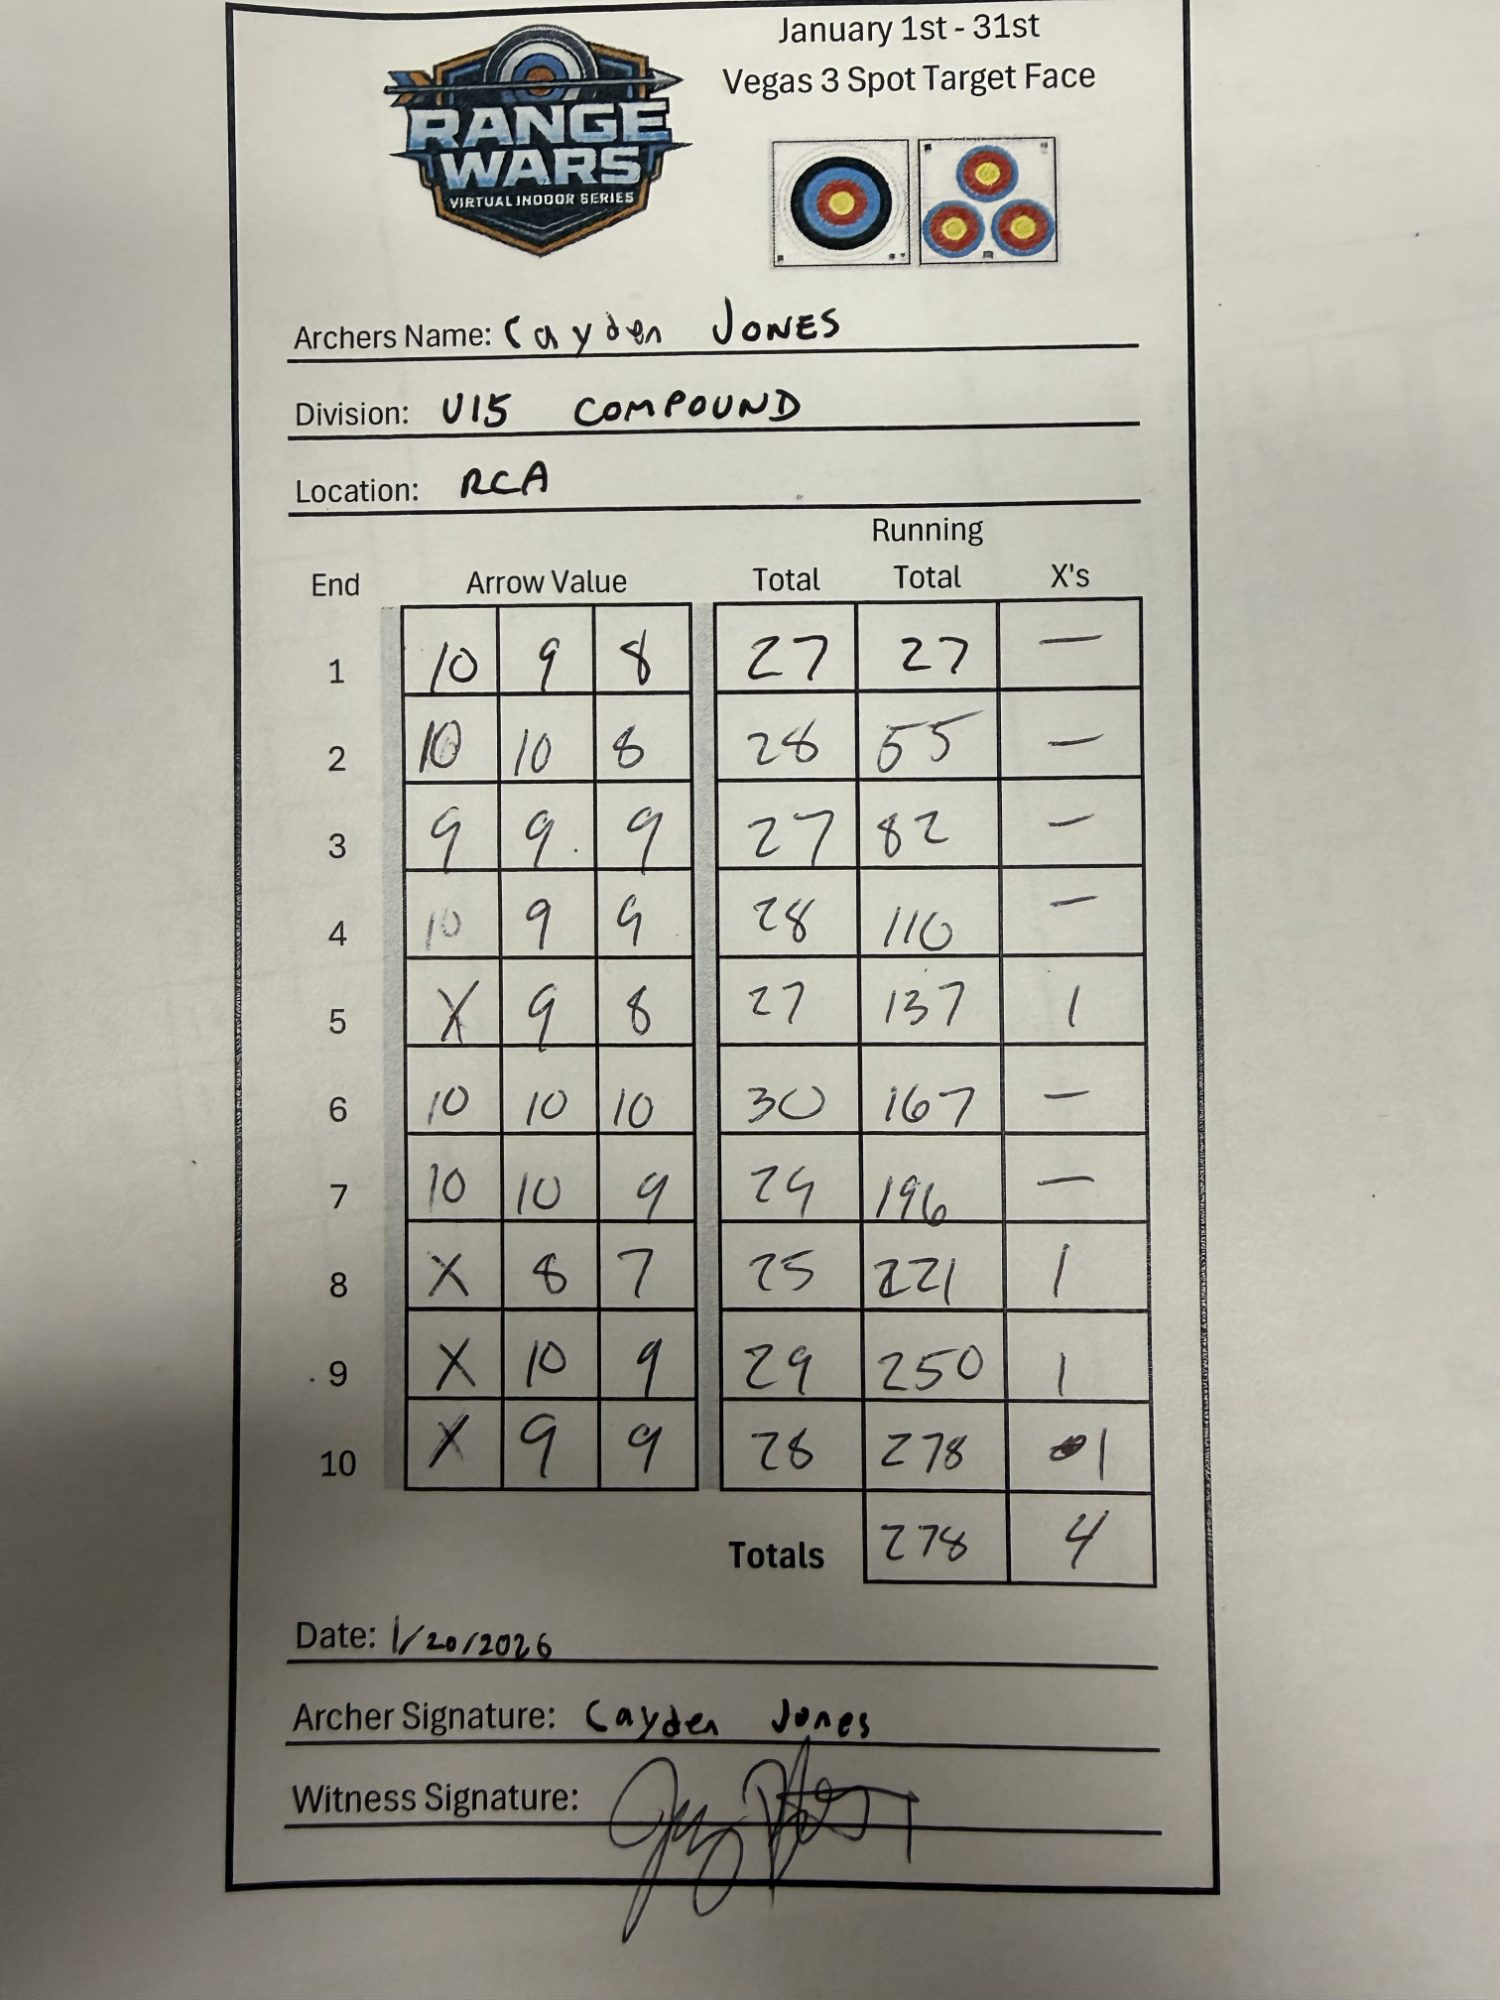 January 1st - 31st
Vegas 3 Spot Target Face
RANGE
WARS
VIRTUAL INDOOR SERIES
Archers Name: Cayden JONES
Division: U15 COMPOUND
Location: RCA
Running
End Arrow Value Total Total X's
1 10 9 8 27 27 —
2 10 10 8 28 55 —
3 9 9 9 27 82 —
4 10 9 9 28 110 —
5 X 9 8 27 137 1
6 10 10 10 30 167 —
7 10 10 9 29 196 —
8 X 8 7 25 221 1
9 X 10 9 29 250 1
10 X 9 9 28 278 1
Totals 278 4
Date: 1/20/2026
Archer Signature: Cayden Jones
Witness Signature: